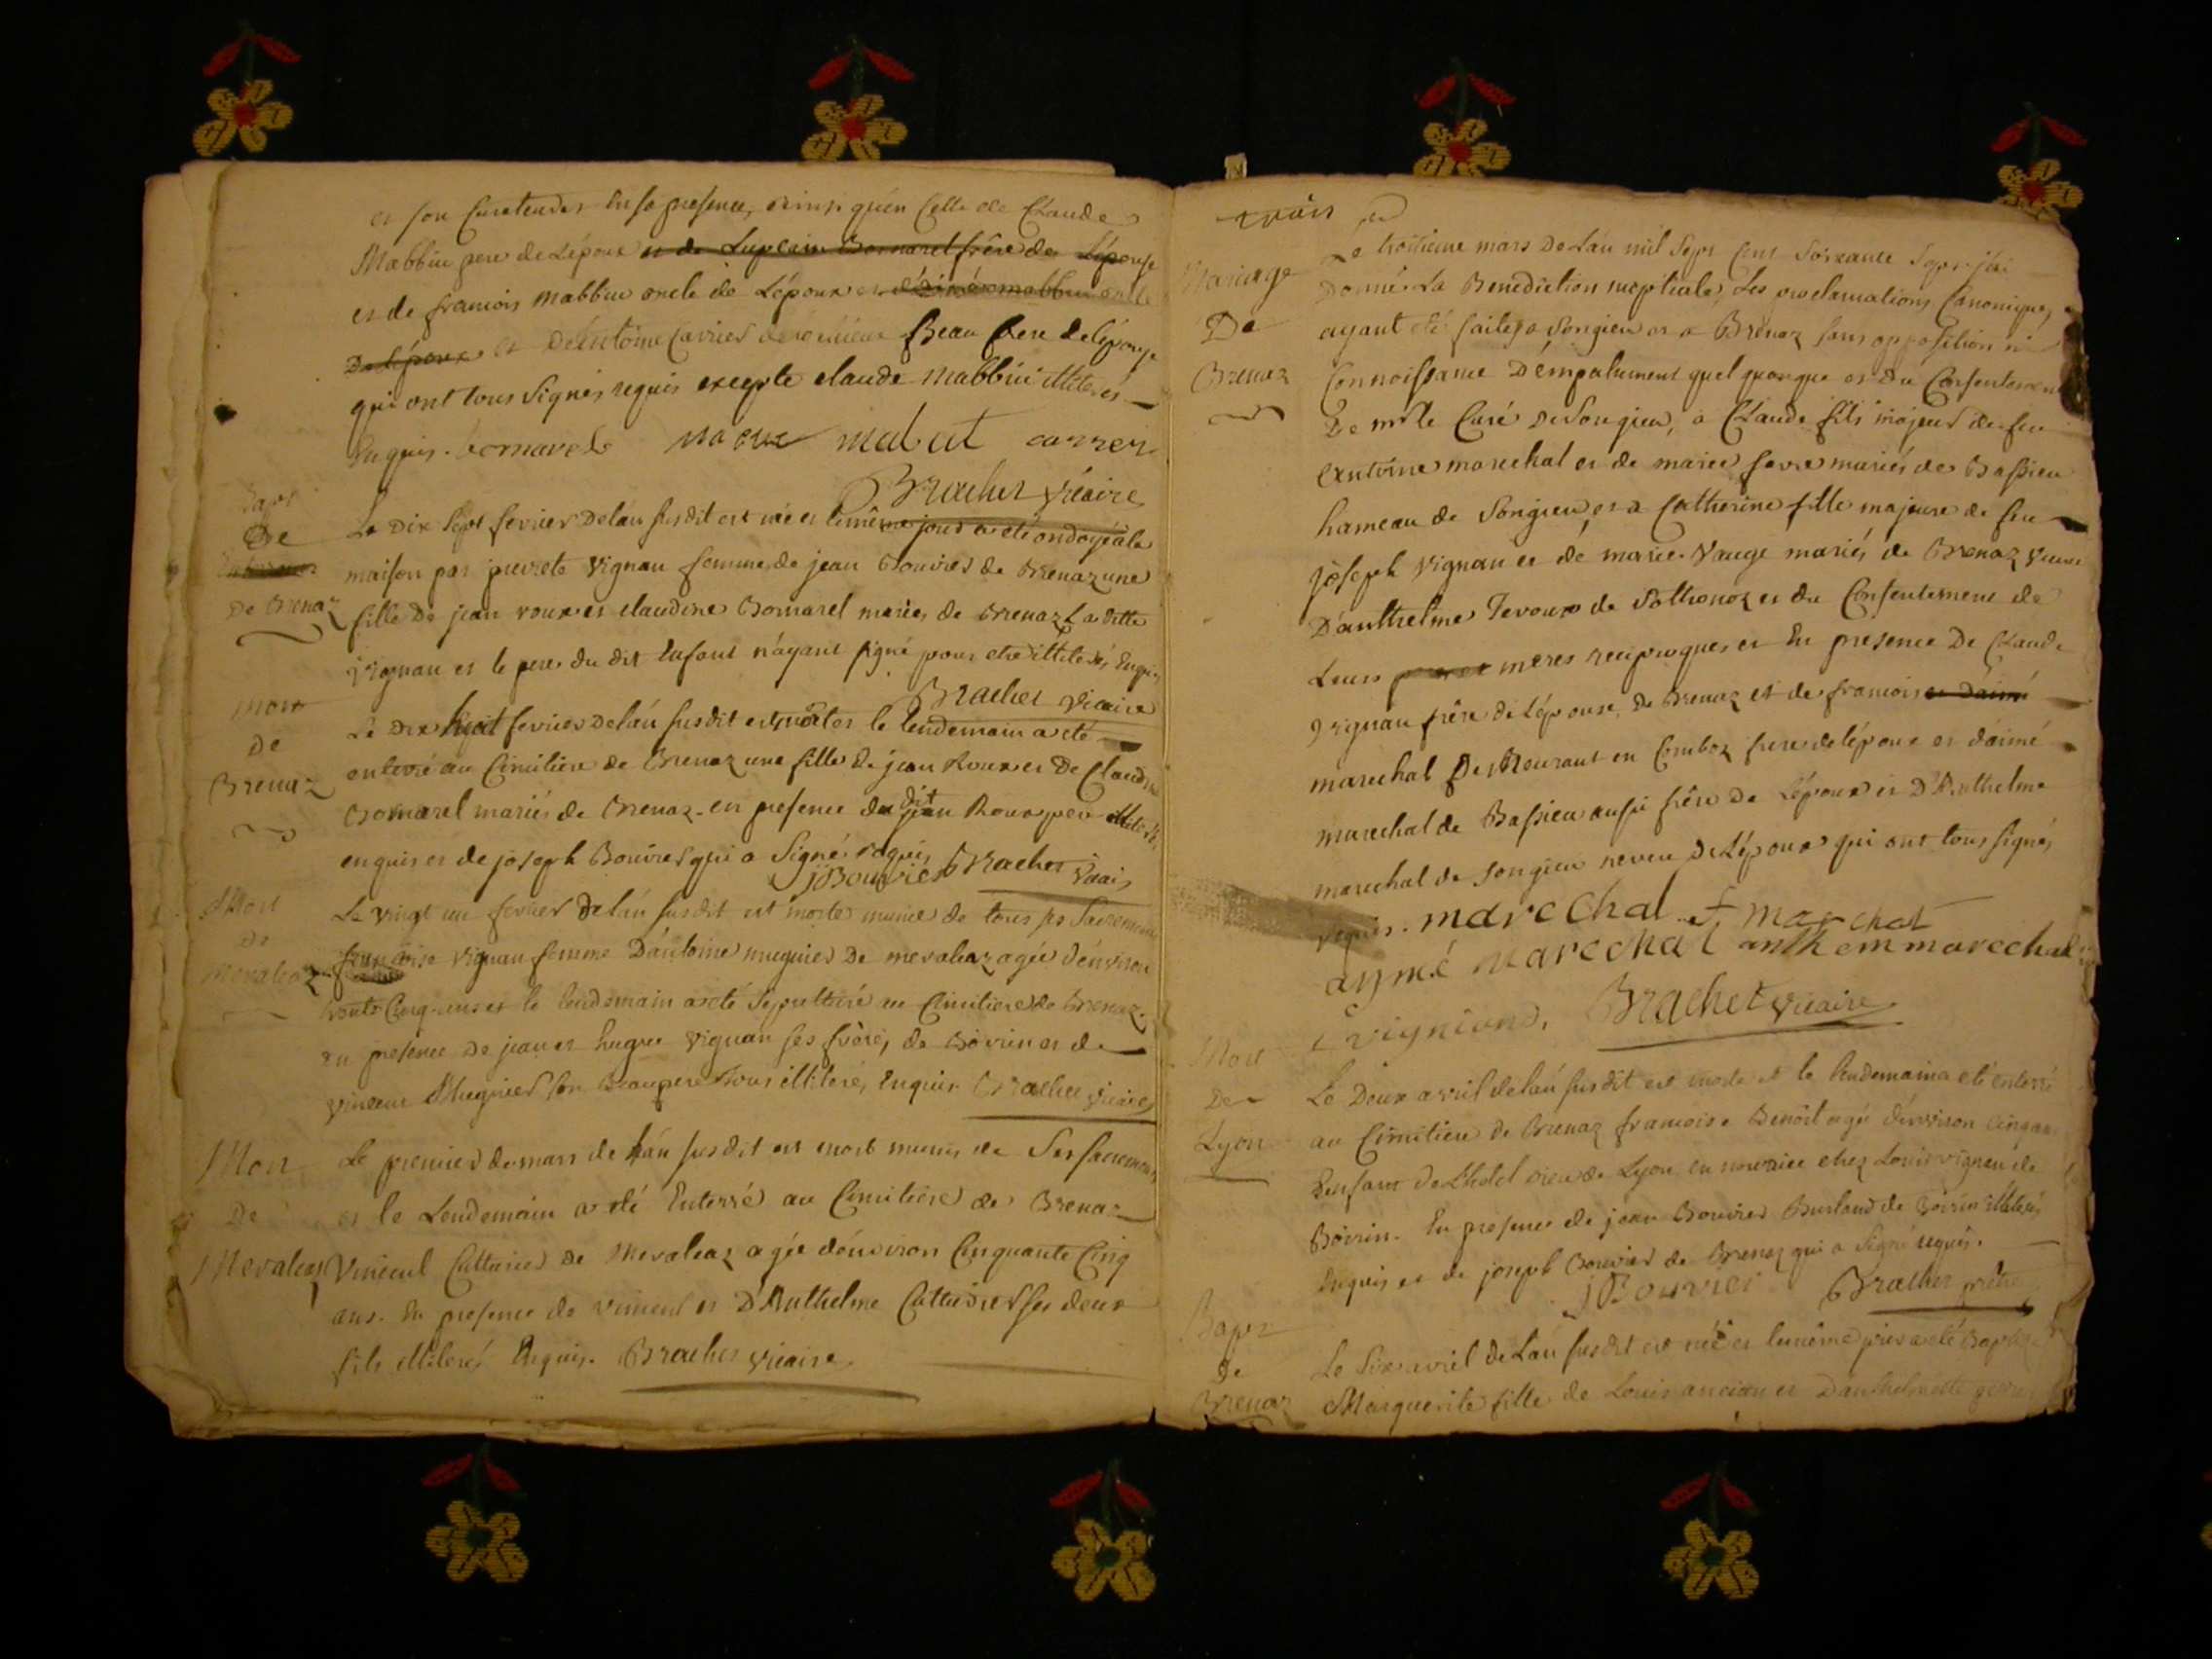 et son Curateur En sa presence, ainsi qu'en Celle de Claude
Mabbiu pere de L'époux et de Lupicin Bornarel frère de L'épouse
et de francois Mabbiu oncle de L'époux et d'aimé mabbiu oncle
De L'époux et D'Antoine Carrier Beau frere de L'épouse
qui ont tous Signés requis excepte claude Mabbiu illiteré
Enquis. bornarel mabiu mabut carrier
Brachet vicaire
Bapt
De
De Brenaz
Le Dix Sept fevrier De L'an susdit est née et le même jour a été ondoyée à la
maison par pierrete Vignan femme de jean Bouvier de Brenaz une
fille De jean roux et claudine Bornarel mariés de Brenaz La ditte
Vignan et le pere du dit Enfant n'ayant signé pour etre illiterés Enquis
Brachet vicaire
Mort
De
Brenaz
Le Dix huit fevrier De L'an susdit est morte et le lendemain a été
enterré au Cimitiere de Brenaz une fille de jean Roux et De Claudine
Bornarel mariés de Brenaz. en presence du dit jean Roux pere illiteré
enquis et de joseph Bouvier qui a Signé requis
jBouvier Brachet vicaire
Mort
De
Mevaleaz
Le vingt un fevrier De L'an susdit est morte munie de tous ses Sacremens
francoise vignan femme D'antoine mugnier De mevaleaz agée d'environ
trente Cinq ans et le lendemain a été Sepulturé au Cimitiere de Brenaz.
en presence De jean et hugue vignan ses frères, de Boirin et de
vincent Mugnier son Beaupere tous illiterés Enquis Brachet vicaire
Mort
De
Mevaleaz
Le premier de mars de L'an susdit est mort munis de Ses sacremens
et le Lendemain a été Enterré au Cimitiere de Brenaz
Vincent Cattanier de Mevaleaz agée d'environ Cinquante Cinq
ans. En presence de vincent et D'Anthelme Cattanier ses deux
fils illiterés Enquis. Brachet vicaire
trois
Mariage
De
Brenaz
Le troisieme mars De L'an mil Sept Cent Soixante Sept j'ai
Donné La Benediction nuptiale, Les proclamations Canoniques
ayant été faites a Songieu et a Brenaz sans opposition ni
Connoissance D'empechement quel quonque et Du Consentement
De mr le Curé De Songieu, a Claude fils majeur de feu
Antoine marechal et de marie favre mariés de Bassieu
hameau de Songieu, et a Catherine fille majeure de feu
joseph Vignan et de marie Vauge mariés de Brenaz Veuve
D'anthelme Tevoux de Sothonoz et du Consentement de
Leurs meres reciproques et En presence De Claude
vignan frère de L'épouse, De Brenaz et de francois et D'aimé
marechal Demeurant en Comboz frere de L'époux et d'aimé
marechal de Bassieu aussi frère De L'époux et D'Anthelme
marechal de Songieu neveu De L'époux qui ont tous signés
requis. marechal f marchat
aymé marechal anthem marechal
c vignian. Brachet vicaire
Mort
De
Lyon
Le Deux avril de L'an susdit est morte et le lendemain a eté enterré
au Cimitiere de Brenaz francoise Benoit agé d'environ Cinq ans
Enfant De L'hotel Dieu de Lyon en nourrice chez Louis vignan de
Boirin. En presence de jean Bouvier Burland de Boirin illiterés
Enquis et de joseph Bouvier de Brenaz qui a Signé requis.
jBouvier Brachet prêtre
Bapt
de
Brenaz
Le Six avril de L'an susdit est née et le même jour a eté Baptizé
Marguerite fille de Louis ancian et D'anthelmette